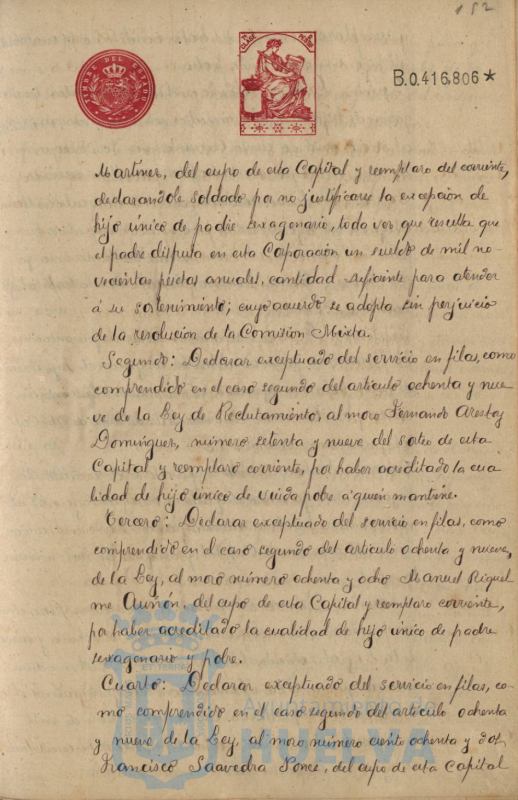 152
TIMBRE DEL ESTADO
CLASE
B.0.416.806*
Martinez, del cupo de esta Capital y reemplazo del corriente,
declarandole soldado por no justificarse la excepcion de
hijo único de padre sexagenario, toda vez que resulta que
el padre disfruta en esta Corporación un sueldo de mil no-
vecientas pesetas anuales, cantidad suficiente para atender
á su sostenimiento; cuyo acuerdo se adopta sin perjuicio
de la resolucion de la Comision Mixta.
Segundo: Declarar exceptuado del servicio en filas, como
comprendido en el caso segundo del articulo ochenta y nue-
ve de la Ley de Reclutamiento, al mozo Fernando
Dominguez, número setenta y nueve del sorteo de esta
Capital y reemplazo corriente, por haber acreditado la cua
lidad de hijo único de viuda pobre á quien mantiene.
Tercero: Declarar exceptuado del servicio en filas, como
comprendido en el caso segundo del articulo ochenta y nueve,
de la Ley, al mozo número ochenta y ocho Manuel Riquel
me Auñón, del cupo de esta Capital y reemplazo corriente,
por haber acreditado la cualidad de hijo único de padre
sexagenario y pobre.
Cuarto: Declarar exceptuado del servicio en filas, co-
mo comprendido en el caso segundo del articulo ochenta
y nueve de la Ley, al mozo número ciento ochenta y dos,
Francisco Saavedra Ponce, del cupo de esta Capital
Ayuntamiento de
HUELVA